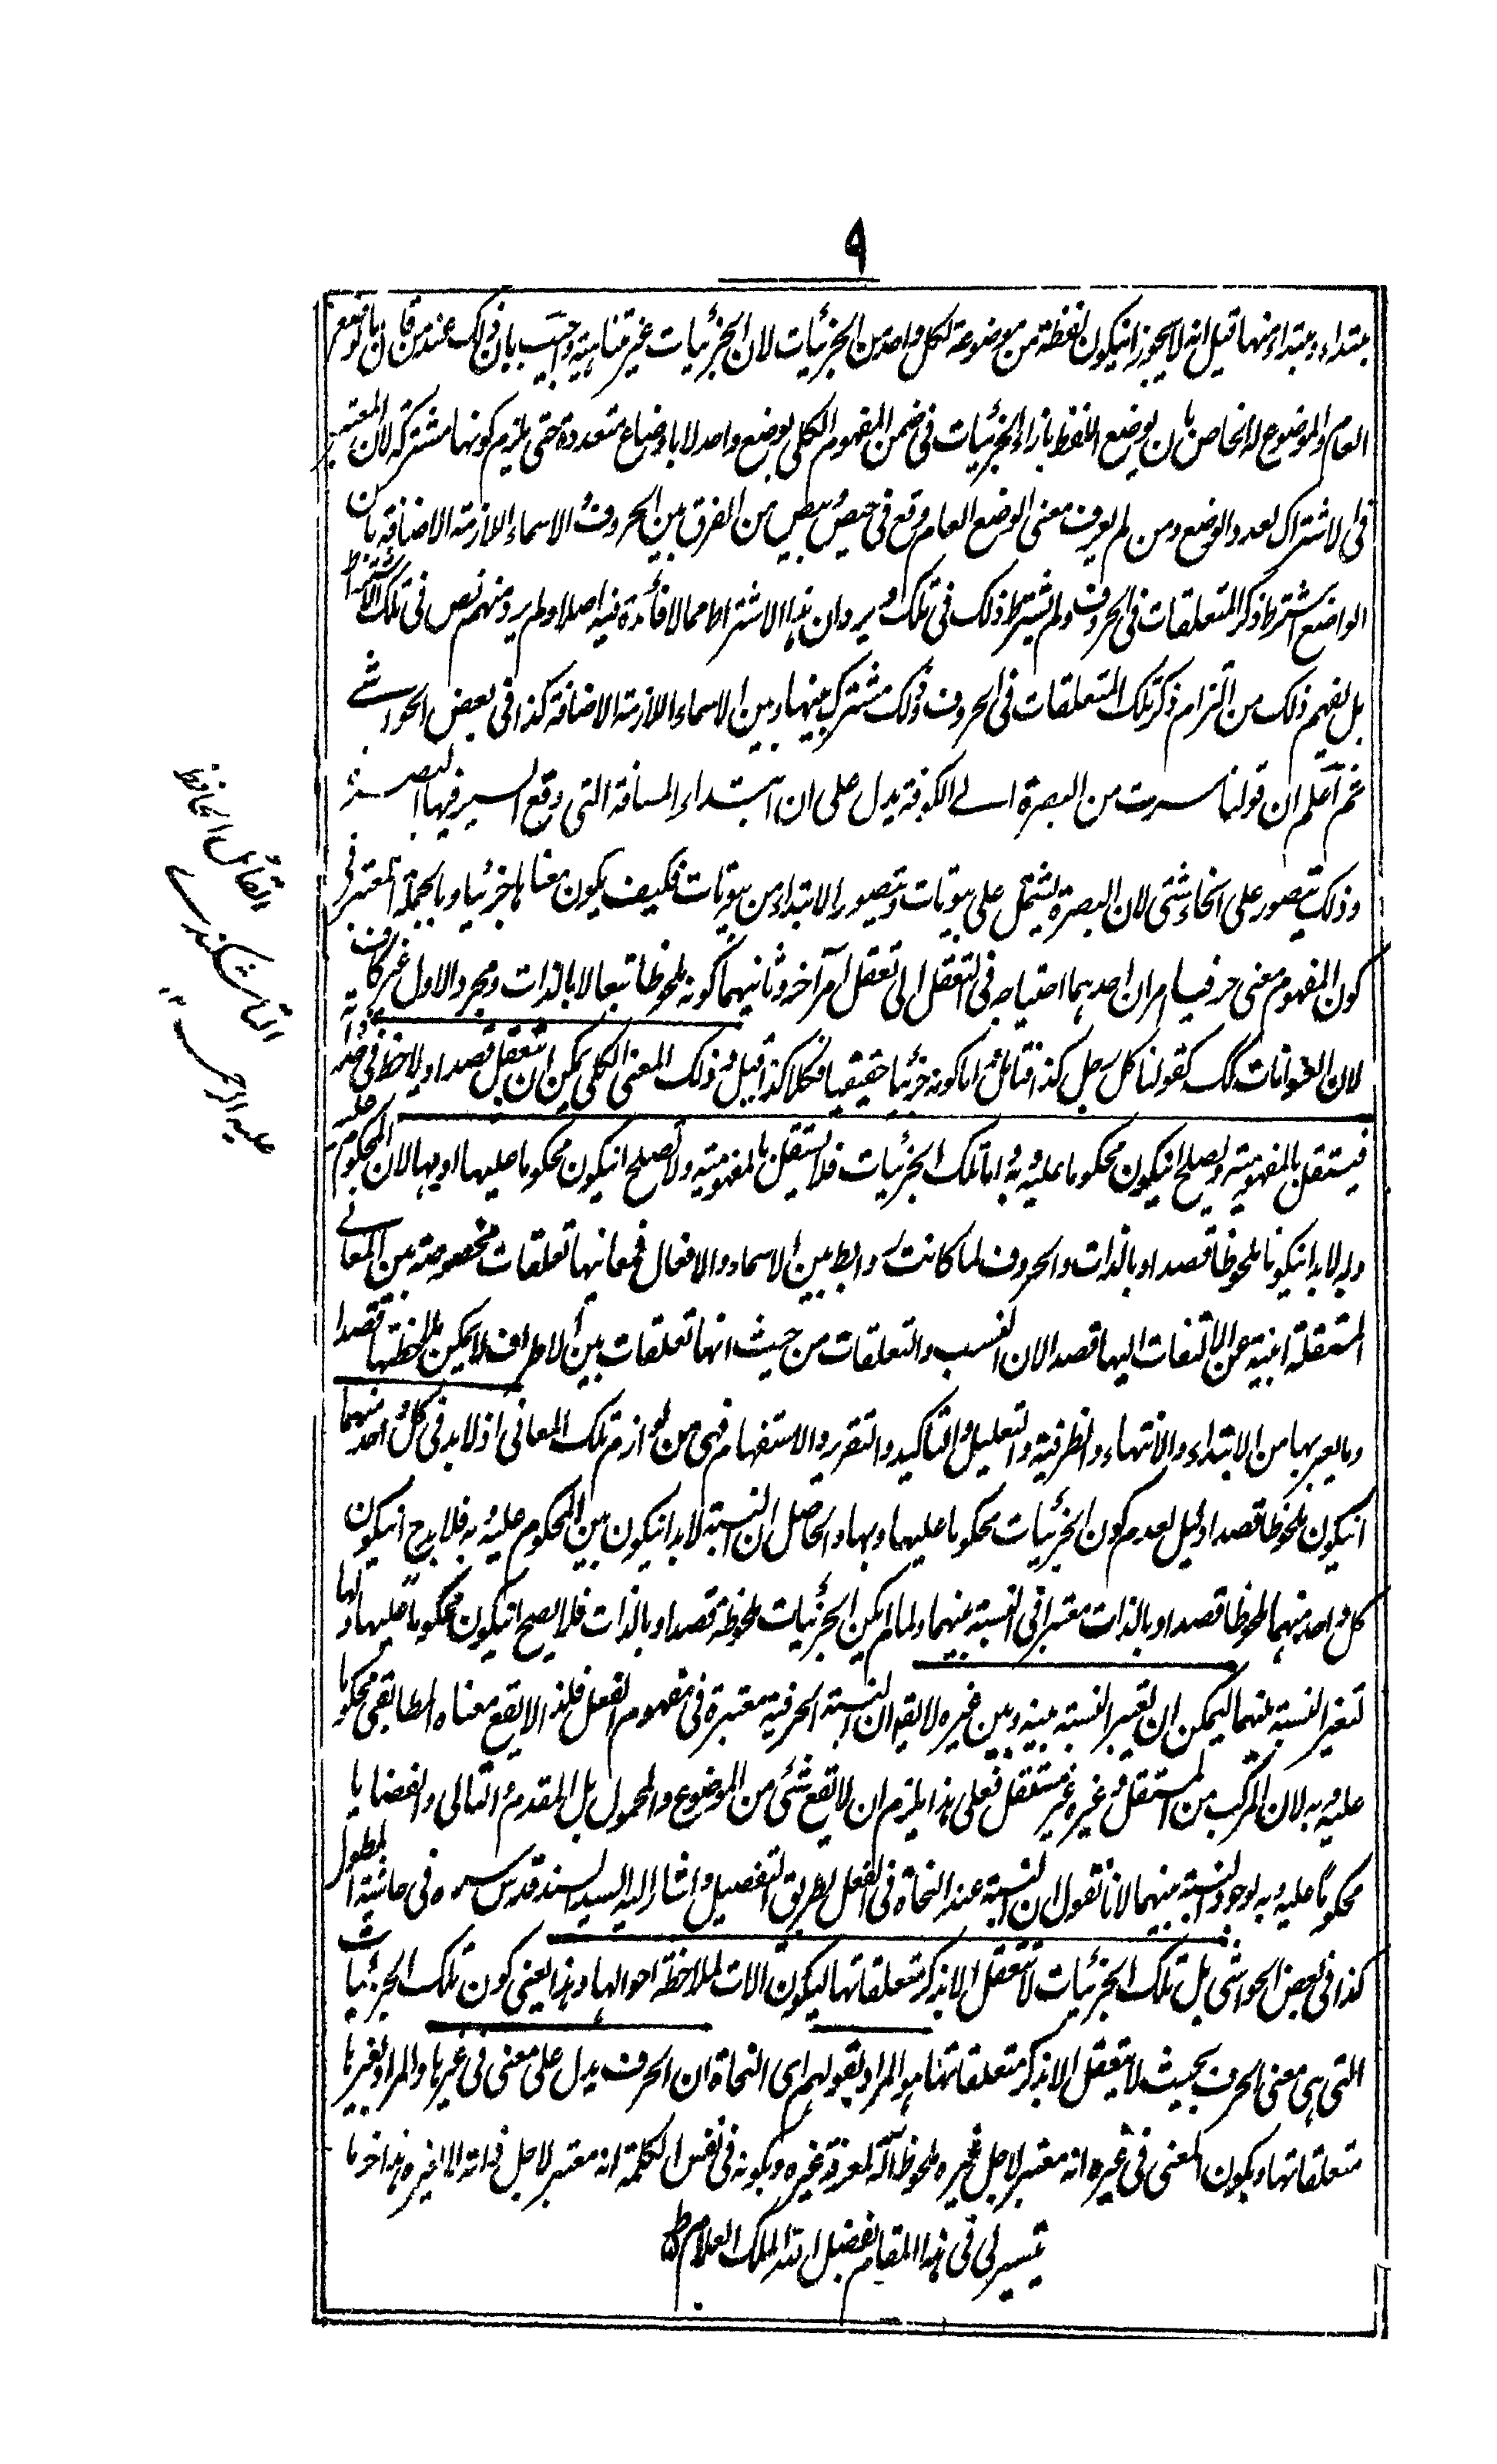 ٩
مبتداء ومبتداء منها قيل انه لا يجوز انيكون لفظة من موضوعة لكل واحد من الجزئيات لان الجزئيات غير متناهية واجيب بان ذلك عند من قال بالوضع
العام والموضوع له الخاص بان يوضع اللفظ بازاء الجزئيات فى ضمن المفهوم الكلى بوضع واحد لا باوضاع متعددة حتى يلزم كونها مشتركة لان المعتبر
فى الاشتراك تعدد الوضع ومن لم يعرف معنى الوضع العام وقع فى حيص بيص من الفرق بين الحروف والاسماء اللازمة الاضافة بان
الواضع اشترط ذكر المتعلقات فى الحروف ولم يشترط ذلك فى تلك ويرد ان هذا الاشتراط مما لا فائدة فيه اصلا ولم يرد منهم نص فى تلك الاشتراط
بل يفهم ذلك من التزام ذكر تلك المتعلقات فى الحروف وذلك مشترك بينها وبين الاسماء اللازمة الاضافة كذا فى بعض الحواشے
ثم اعلم ان قولنا سرت من البصرة الے الكوفة يدل على ان ابتداء المسافة التى وقع السير فيها البصرة
وذلك يتصور على انحاء شتى لان البصرة يشتمل على بيوتات ويتصور الابتداء من بيوتات فكيف يكون معناها جزئيا وبالجملة المعتبر فى
كون المفهوم معنى حرفيا امران احدهما احتياجه فى التعقل الى تعقل امر آخر وثانيهما كونه ملحوظا تبعا لا بالذات ومجرد الاول غير كاف
لان العنوانات كك كقولنا كل رجل كذا فتأمل واما كونه جزئيا حقيقيا فكلا كذا قيل وذلك المعنى الكلى يمكن ان يتعقل قصدا ويلاحظ فى حد ذاته
فيستقل بالمفهومية ويصلح انيكون محكوما عليه وبه واما تلك الجزئيات فلا يستقل بالمفهومية ولا تصلح انيكون محكوما عليها او بها لان المحكوم عليه
وبه لا بد انيكونا ملحوظا قصدا وبالذات والحروف لما كانت روابط بين الاسماء والافعال فمعانيها تعلقات مخصوصة بين المعانے
المستقلة ابنية عن الالتفات اليها قصدا لان النسب والتعلقات من حيث انها تعلقات بين الاطراف لا يمكن ملاحظتها قصدا
وما يعبر بها من الابتداء والانتهاء والظرفية والتعليل والتاكيد والتقرير والاستفهام فهى من لوازم تلك المعانى اذ لا بد فى كل واحد منهما
انيكون ملحوظا قصدا دليل لعدم كون الجزئيات محكوما عليها وبها والحاصل ان النسبة لا بد انيكون بين المحكوم عليه وبه فلا بد ح انيكون
كل واحد منهما ملحوظا قصدا وبالذات معتبرا فى النسبة بينهما ولما لم يكن الجزئيات ملحوظة قصدا وبالذات فلا يصح انيكون محكوما عليها وبها
لتعتبر النسبة بينهما ليمكن ان يعتبر النسبة بينه وبين غيره لا يقو ان النسبة الحرفية معتبرة فى مفهوم الفعل فلذا لا يقع معناه المطابقى محكوما
عليه وبه لان المركب من المستقل وغيره غير مستقل فعلى هذا يلزم ان لا يقع شئ من الموضوع والمحمول بل المقدم والتالى والقضايا
محكوما عليه وبه لوجود النسبة بينهما لانا نقول ان النسبة عند النحاة فى الفعل بطريق التفصيل واشار اليه السيد السند قدس سره فى حاشية المطول
كذا فى بعض الحواشى بل تلك الجزئيات لا تتعقل الا بذكر متعلقاتها ليكون آلات لملاحظة احوالها وهذا يعنى كون تلك الجزئيات
التى هى معنى الحرف بحيث لا يتعقل الا بذكر متعلقاتها هو المراد بقولهم اى النحاة ان الحرف يدل على معنى فى غيرها والمراد بغيرها
متعلقاتها وبكون المعنى فى غيره انه معتبر لاجل غيره وملحوظ آلة لمعرفة غيره وبكونه فى نفس الكلمة انه معتبر لاجل ذاته لا لغيره هذا آخر ما
تيسر لى فى هذا المقام بفضل الله الملك العلام
القائل الحافظ
التاشكندے
عليه الرحمة